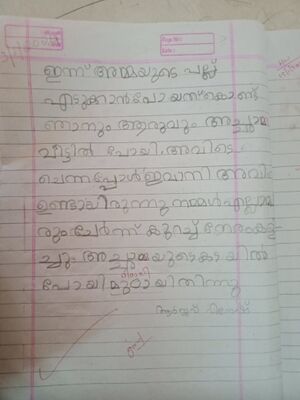 ഇന്ന് അമ്മയുടെ പല്ല്
എടുക്കാൻപോയത്കൊണ്ട്
ഞാനും ആരുവും അച്ചാമ്മ
വീട്ടിൽ പോയി. അവിടെ
ചെന്നപ്പോൾ ഇവാനി അവിടെ
ഉണ്ടായിരുന്നു നമ്മൾ എല്ലാമ
രുംചേർന്ന് കുറച്ച് നേരംകളി
ച്ചും അച്ചാമ്മയുടെകടയിൽ
പോയി മുഠായിതിന്നു